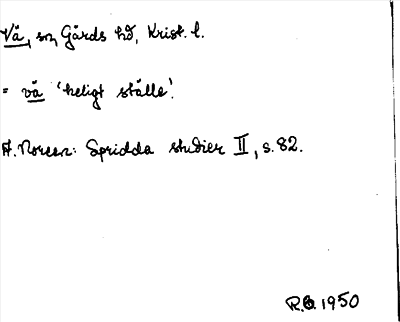 Vä, sn, Gärds hd, Krist. l.
= vä 'heligt ställe'.
A. Noreen: Spridda studier II, s. 82.
1950